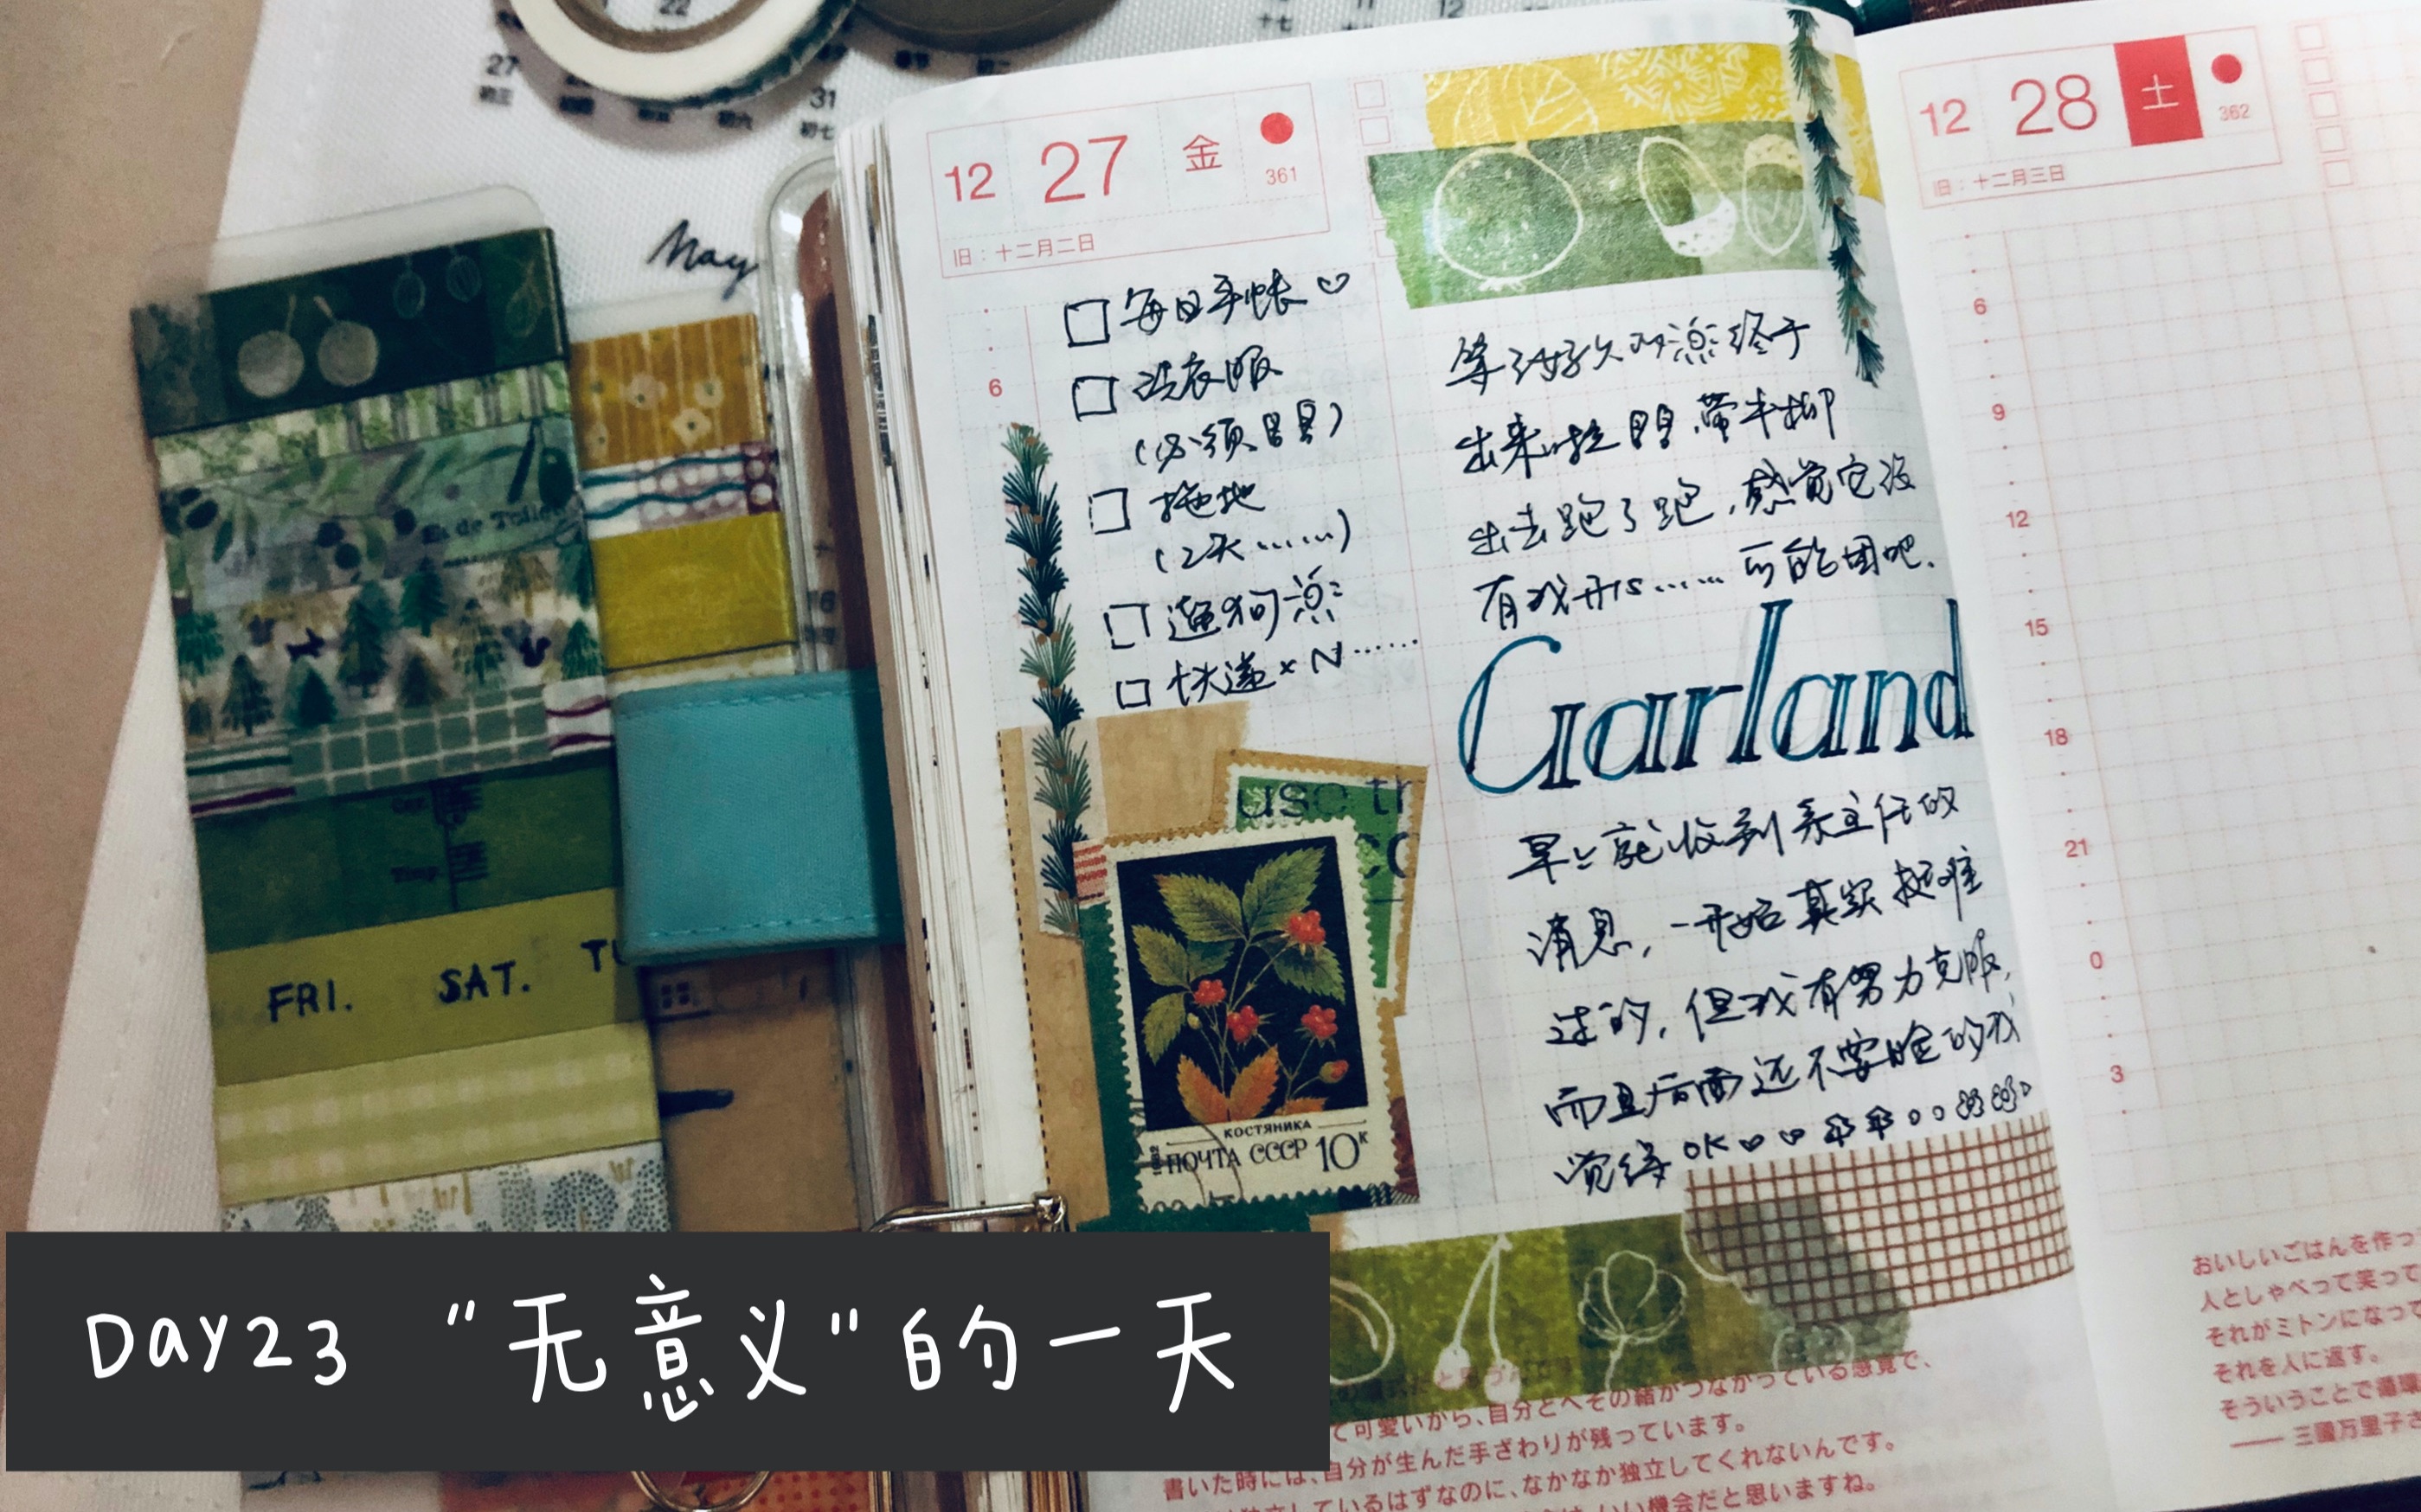 22
12
27
初三
31
初七
May
FRI.
SAT.
12 27 金
361
旧：十二月二日
6
□ 每日手帐♡
□ 洗衣服
(必须
□ 拖地
(2天……)
□ 遛狗
□ 快递×N……
use
КОСТЯНИКА
ПОЧТА СССР 10К
等了好久的 终于
出来啦 带半柳
出去跑了跑，感觉它没
有我开心……可能困吧.
Garland
早上就收到系主任的
消息，一开始真实挺难
过的，但我有努力克服，
而且后面还不要脸的我
觉得OK
12 28 土
362
旧：十二月三日
6
9
12
15
18
21
0
3
て可愛いから、自分とへその緒がつながっている感覚で、
自分が生んだ手ざわりが残っています。
書いた時には、
独立しているはずなのに、なかなか独立してくれないんです。
いい機会だと思いますね。
おいしいごはんを作っ
人としゃべって笑って
それがミトンになって
それを人に返す。
そういうことで循環
── 三國万里子さ
Day23 "无意义"的一天